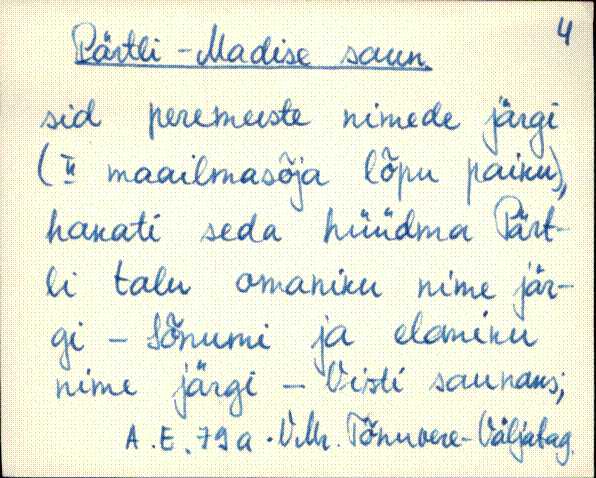 4
Pärtli-Madise saun.
sid peremeeste nimede järgi
(II maailmasõja lõpu paiku),
hakati seda hüüdma Pärt-
li talu omaniku nime jär-
gi - Sõnumi ja elaniku
nime järgi - Viisti saunaks;
A.E. 79a. V.Mr. Tõnuvere-Väljatag.